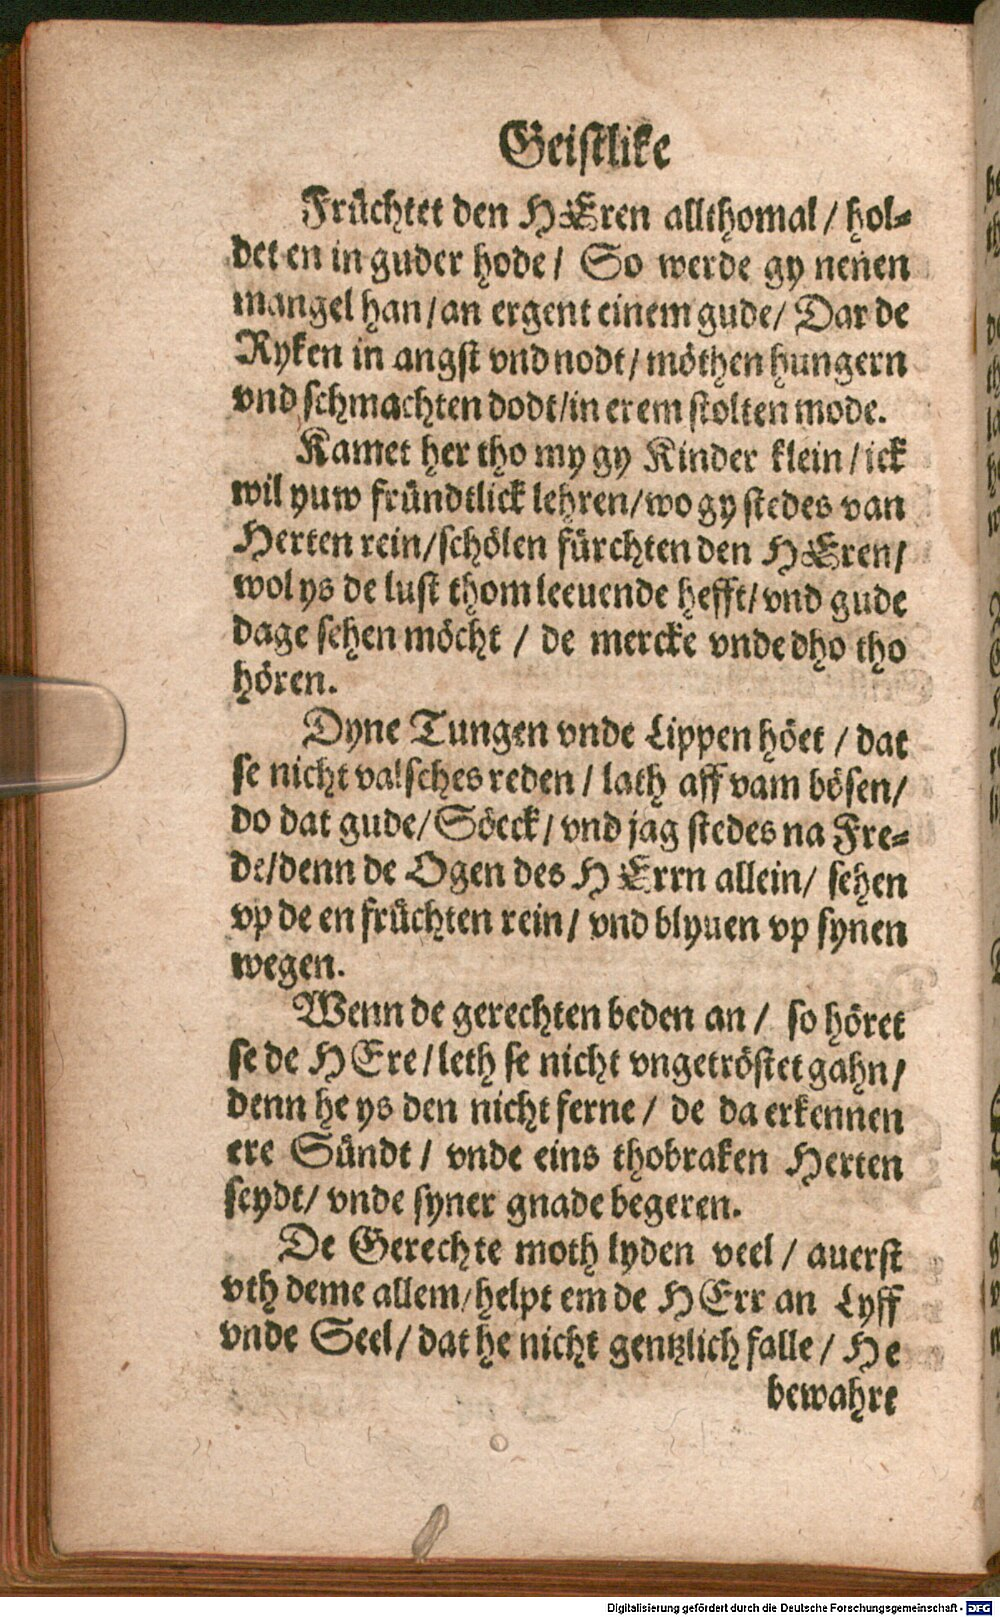 Geistlike
Früchtet den HEren allthomal / hol-
det en in guder hode / So werde gy nenen
mangel han / an ergent einem gude / Dar de
Ryken in angst vnd nodt / möthen hungern
vnd schmachten dodt / in erem stolten mode.
Kamet her tho my gy Kinder klein / ick
wil yuw fründtlick lehren / wo gy stedes van
Herten rein / schölen fürchten den HEren /
wol ys de lust thom leeuende hefft / vnd gude
dage sehen möcht / de mercke vnde dho tho
hören.
Dyne Tungen vnde Lippen höet / dat
se nicht valsches reden / lath aff vam bösen /
do dat gude / Söeck / vnd jag stedes na Fre-
de / denn de Ogen des HErrn allein / sehen
vp de en früchten rein / vnd blyuen vp synen
wegen.
Wenn de gerechten beden an / so höret
se de HEre / leth se nicht vngetröstet gahn /
denn he ys den nicht ferne / de da erkennen
ere Sündt / vnde eins thobraken Herten
seydt / vnde syner gnade begeren.
De Gerechte moth lyden veel / auerst
vth deme allem / helpt em de HErr an Lyff
vnde Seel / dat he nicht gentzlich falle / He
bewahrt
Digitalisierung gefördert durch die Deutsche Forschungsgemeinschaft - DFG